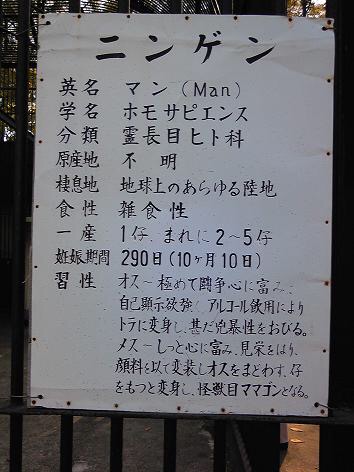 ニンゲン
英名 マン(Man)
学名 ホモサピエンス
分類 霊長目ヒト科
原産地 不明
棲息地 地球上のあらゆる陸地
食性 雑食性
一産 1仔、まれに2~5仔
妊娠期間 290日(10ヶ月10日)
習性 オス~極めて闘争心に富み、
自己顕示欲強く、アルコール飲用により
トラに変身し、甚だ兇暴性をおびる。
メス~しっと心に富み、見栄をはり、
顔料を以て変装しオスをまどわす。仔
をもつと変身し、怪獣目ママゴンとなる。